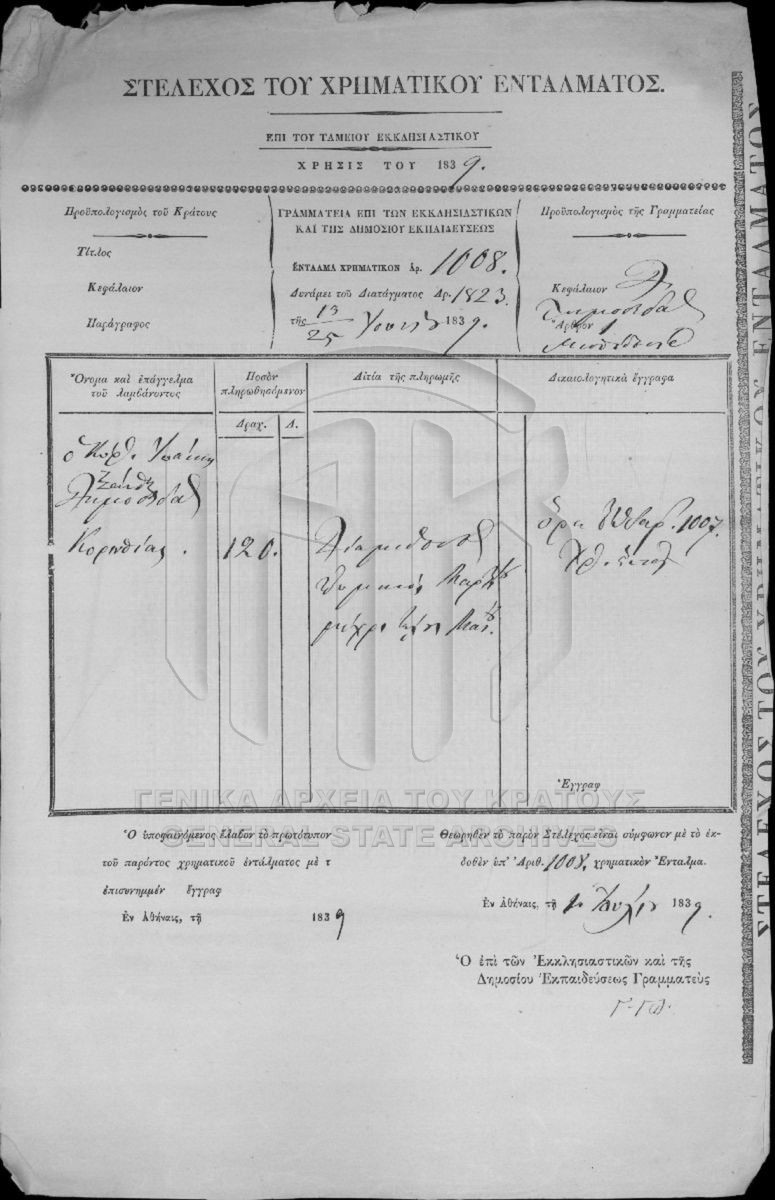 ΣΤΕΛΕΧΟΣ ΤΟΥ ΧΡΗΜΑΤΙΚΟΥ ΕΝΤΑΛΜΑΤΟΣ.
ΕΠΙ ΤΟΥ ΤΑΜΕΙΟΥ ΕΚΚΛΗΣΙΑΣΤΙΚΟΥ
ΧΡΗΣΙΣ ΤΟΥ 1839.
Προϋπολογισμὸς τοῦ Κράτους
Τίτλος
Κεφάλαιον
Παράγραφος
ΓΡΑΜΜΑΤΕΙΑ ΕΠΙ ΤΩΝ ΕΚΚΛΗΣΙΑΣΤΙΚΩΝ
ΚΑΙ ΤΗΣ ΔΗΜΟΣΙΟΥ ΕΚΠΑΙΔΕΥΣΕΩΣ
ΕΝΤΑΛΜΑ ΧΡΗΜΑΤΙΚΟΝ Αρ. 1008.
Δυνάμει τοῦ Διατάγματος Αρ. 1823.
τῆς 13/25 1839.
Προϋπολογισμὸς τῆς Γραμματείας
Κεφάλαιον
Ἄρθρον
Ὄνομα καὶ ἐπάγγελμα
τοῦ λαμβάνοντος
Ποσὸν
πληρωθησόμενον
Δραχ. Λ.
Αἰτία τῆς πληρωμῆς
Δικαιολογητικὰ ἔγγραφα
ὁ
Κορινθίας. 120.
1007.
μέχρι
Ἔγγραφ
ΓΕΝΙΚΑ ΑΡΧΕΙΑ ΤΟΥ ΚΡΑΤΟΥΣ
GENERAL STATE ARCHIVES
Ὁ ὑποφαινόμενος ἔλαβον τὸ πρωτότυπον
τοῦ παρόντος χρηματικοῦ ἐντάλματος μὲ τ
ἐπισυνημμέν ἔγγραφ
Ἐν Ἀθήναις, τῇ 1839
Θεωρηθὲν τὸ παρὸν Στέλεχος εἶναι σύμφωνον μὲ τὸ ἐκ-
δοθὲν ὑπ' Ἀριθ. 1008. χρηματικὸν Ἔνταλμα.
Ἐν Ἀθήναις, τῇ 1839.
Ὁ ἐπὶ τῶν Ἐκκλησιαστικῶν καὶ τῆς
Δημοσίου Ἐκπαιδεύσεως Γραμματεὺς
ΣΤΕΛΕΧΟΣ ΤΟΥ ΧΡΗΜΑΤΙΚΟΥ ΕΝΤΑΛΜΑΤΟΣ